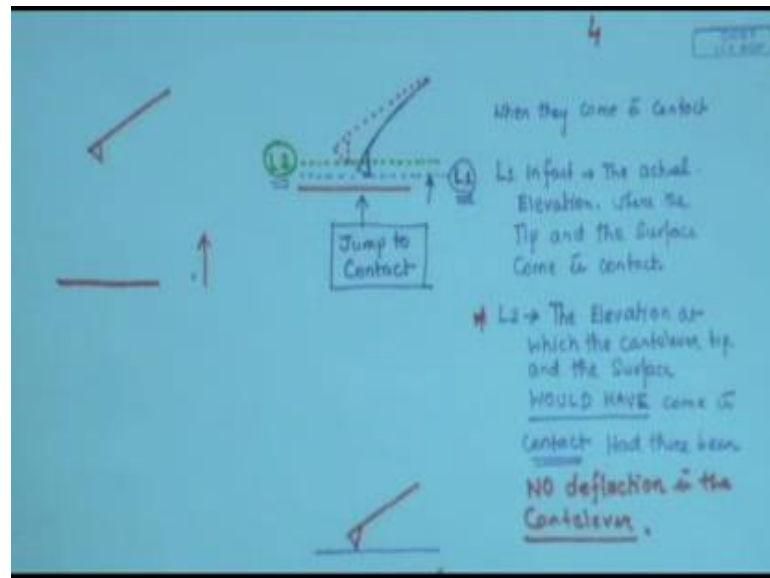 4
When they come in contact
L2
L1
L1 Infact → The actual
Elevation, where the
Tip and the Surface
Come in contact
Jump to
Contact
* L2 → The Elevation at
which the Cantelever tip
and the Surface
WOULD HAVE come in
Contact Had there been
NO deflection in the
Cantelever.